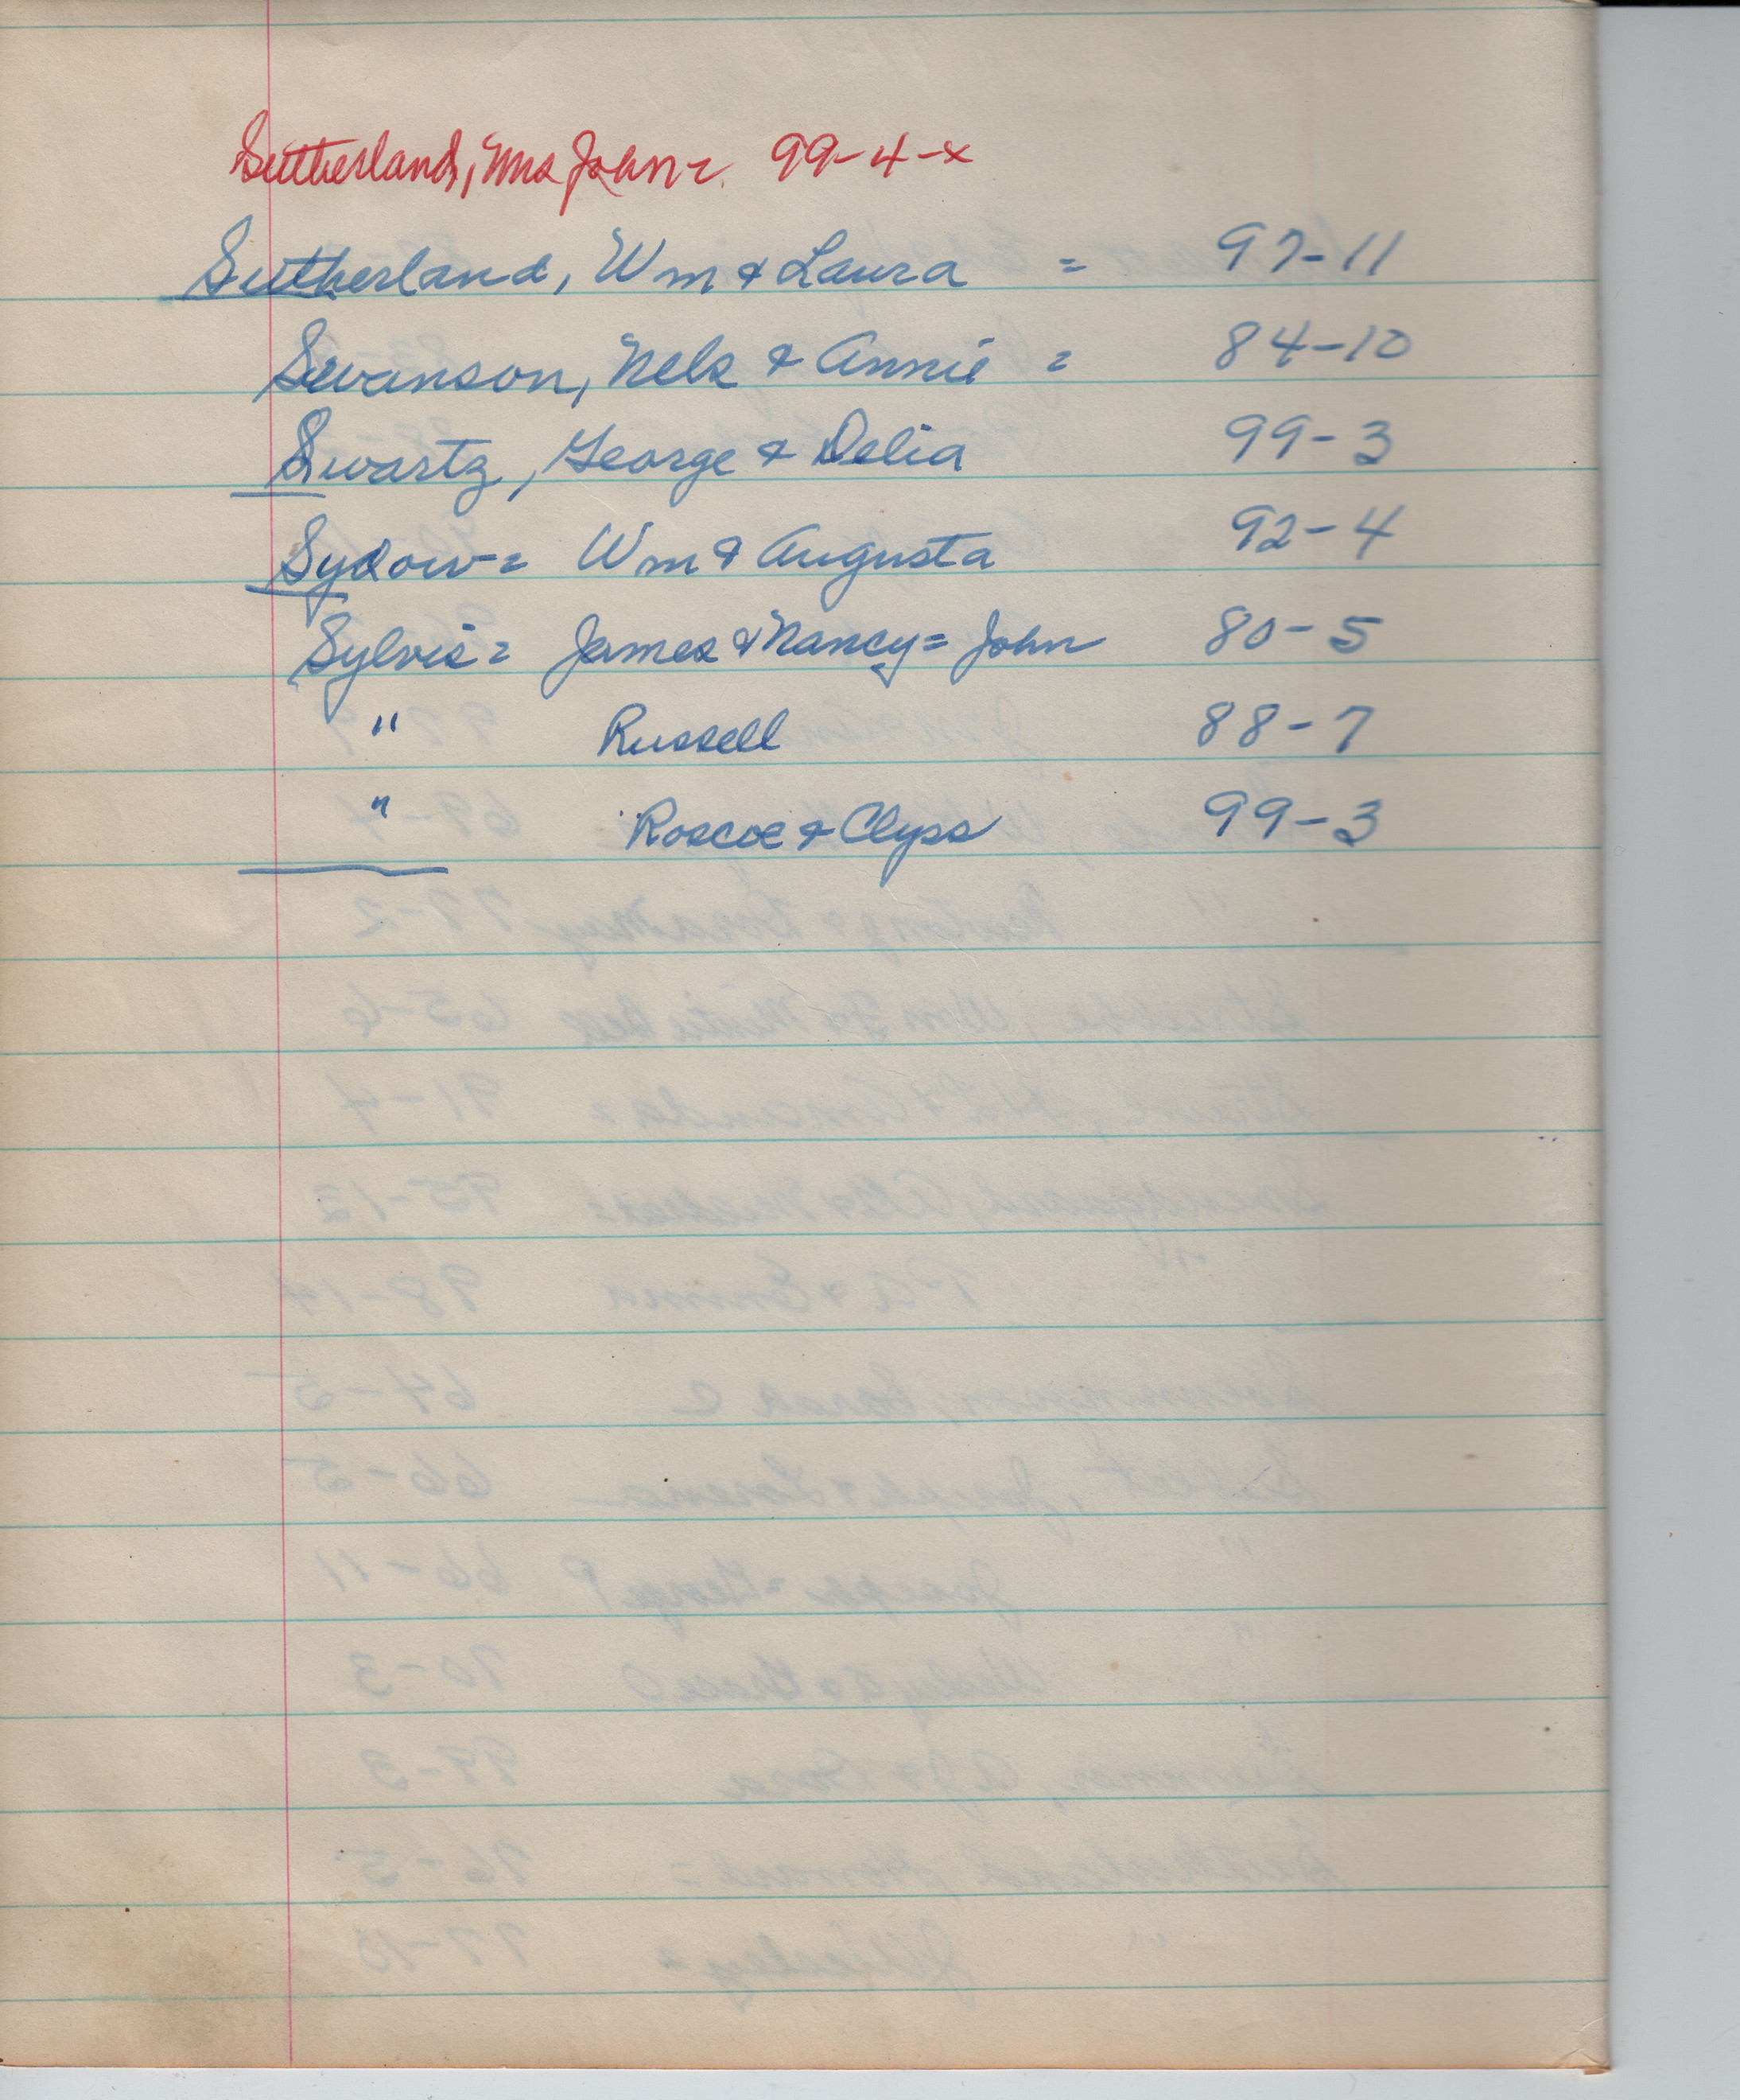 Sutherland, Mrs John = 99-4-x
Sutherland, Wm & Laura = 97-11
Swanson, Nels & Annie = 84-10
Swartz, George & Delia 99-3
Sydow = Wm & Augusta 92-4
Sylvis = James & Nancy = John 80-5
" Russell 88-7
" Roscoe & Clyss 99-3